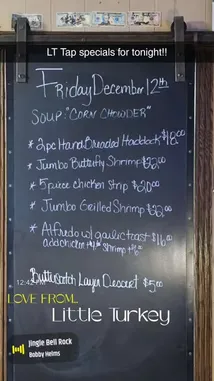 LT Tap specials for tonight!!
Friday December 12th
SOUP: "CORN CHOWDER"
* 2pc Hand Breaded Haddock $18.00
* Jumbo Butterfly Shrimp $22.00
* 5 piece chicken strip $20.00
* Jumbo Grilled Shrimp $22.00
* Alfredo w/ garlic toast $16.00
add chicken + $4 shrimp + $6
Butterscotch Layer Dessert $5.00
12:42
LOVE FROM,
Little Turkey
Jingle Bell Rock
Bobby Helms